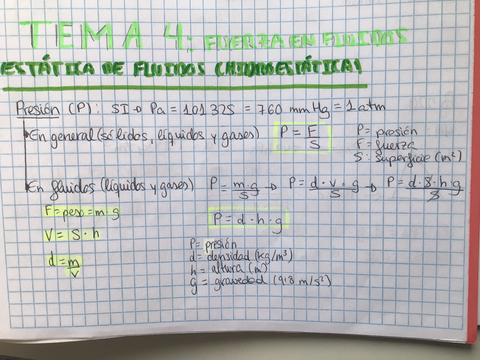 TEMA 4: FUERZA EN FLUIDOS
ESTÁTICA DE FLUIDOS (HIDROESTÁTICA)
Presión (P): SI → Pa = 101325 = 760 mmHg = 1 atm
En general (sólidos, líquidos y gases) P = F/S P = presión
F = fuerza
S: superficie (m²)
En fluidos (líquidos y gases) P = m·g/S → P = d·v·g/S → P = d·S·h·g/S
F = peso = m·g
P = d·h·g
V = S·h
d = m/v
P = presión
d = densidad (kg/m³)
h = altura (m)
g = gravedad (9'8 m/s²)